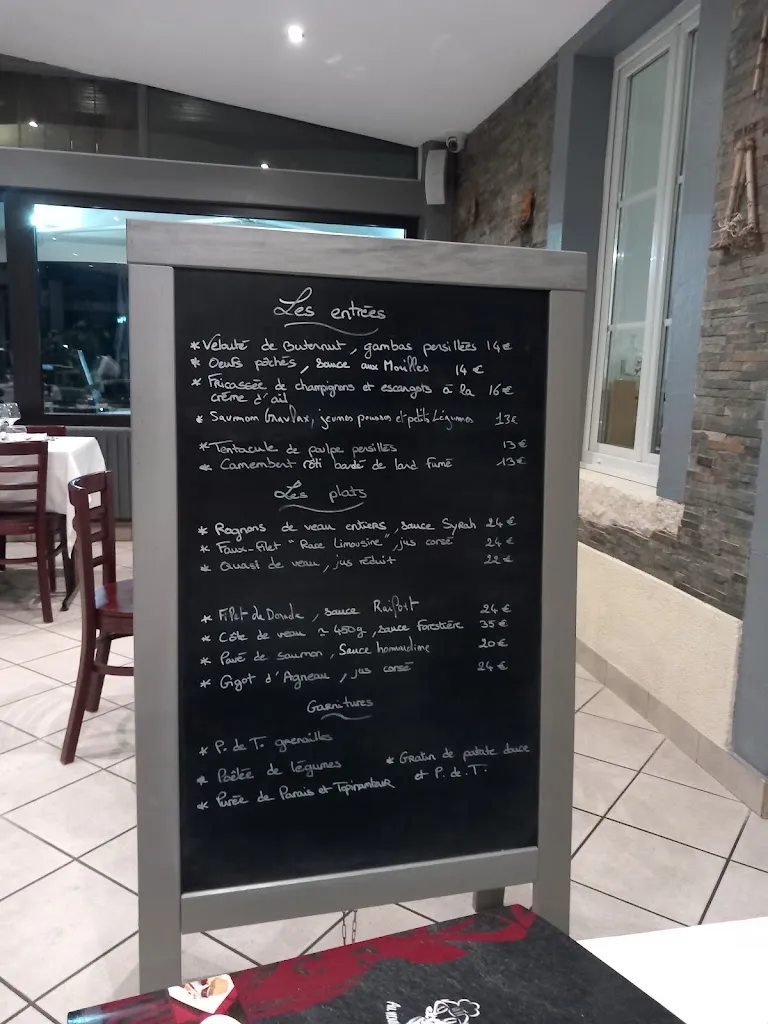 Les entrées
* Velouté de Buternut, gambas persillées 14€
* Oeufs pochés, sauce aux Morilles 14 €
* Fricassée de champignons et escargots à la
crème d'ail 16€
* Saumon Gravlax, jeunes pousses et petits Légumes 13€
* Tentacule de poulpe persillés 13€
* Camembert rôti bardé de lard Fumé 13€
Les plats
* Rognons de veau entiers, sauce Syrah 24€
* Faux-Filet "Race Limousine", jus corsé 24€
* Quasi de veau, jus réduit 22€
* Filet de Dorade, sauce Raifort 24€
* Côte de veau ~ 450g, sauce Forestière 35€
* Pavé de saumon, Sauce homardine 20€
* Gigot d'Agneau, jus corsé 24€
Garnitures
* P. de T. grenailles
* Poêlée de légumes
* Purée de Panais et Topinambour
* Gratin de patate douce
et P. de T.